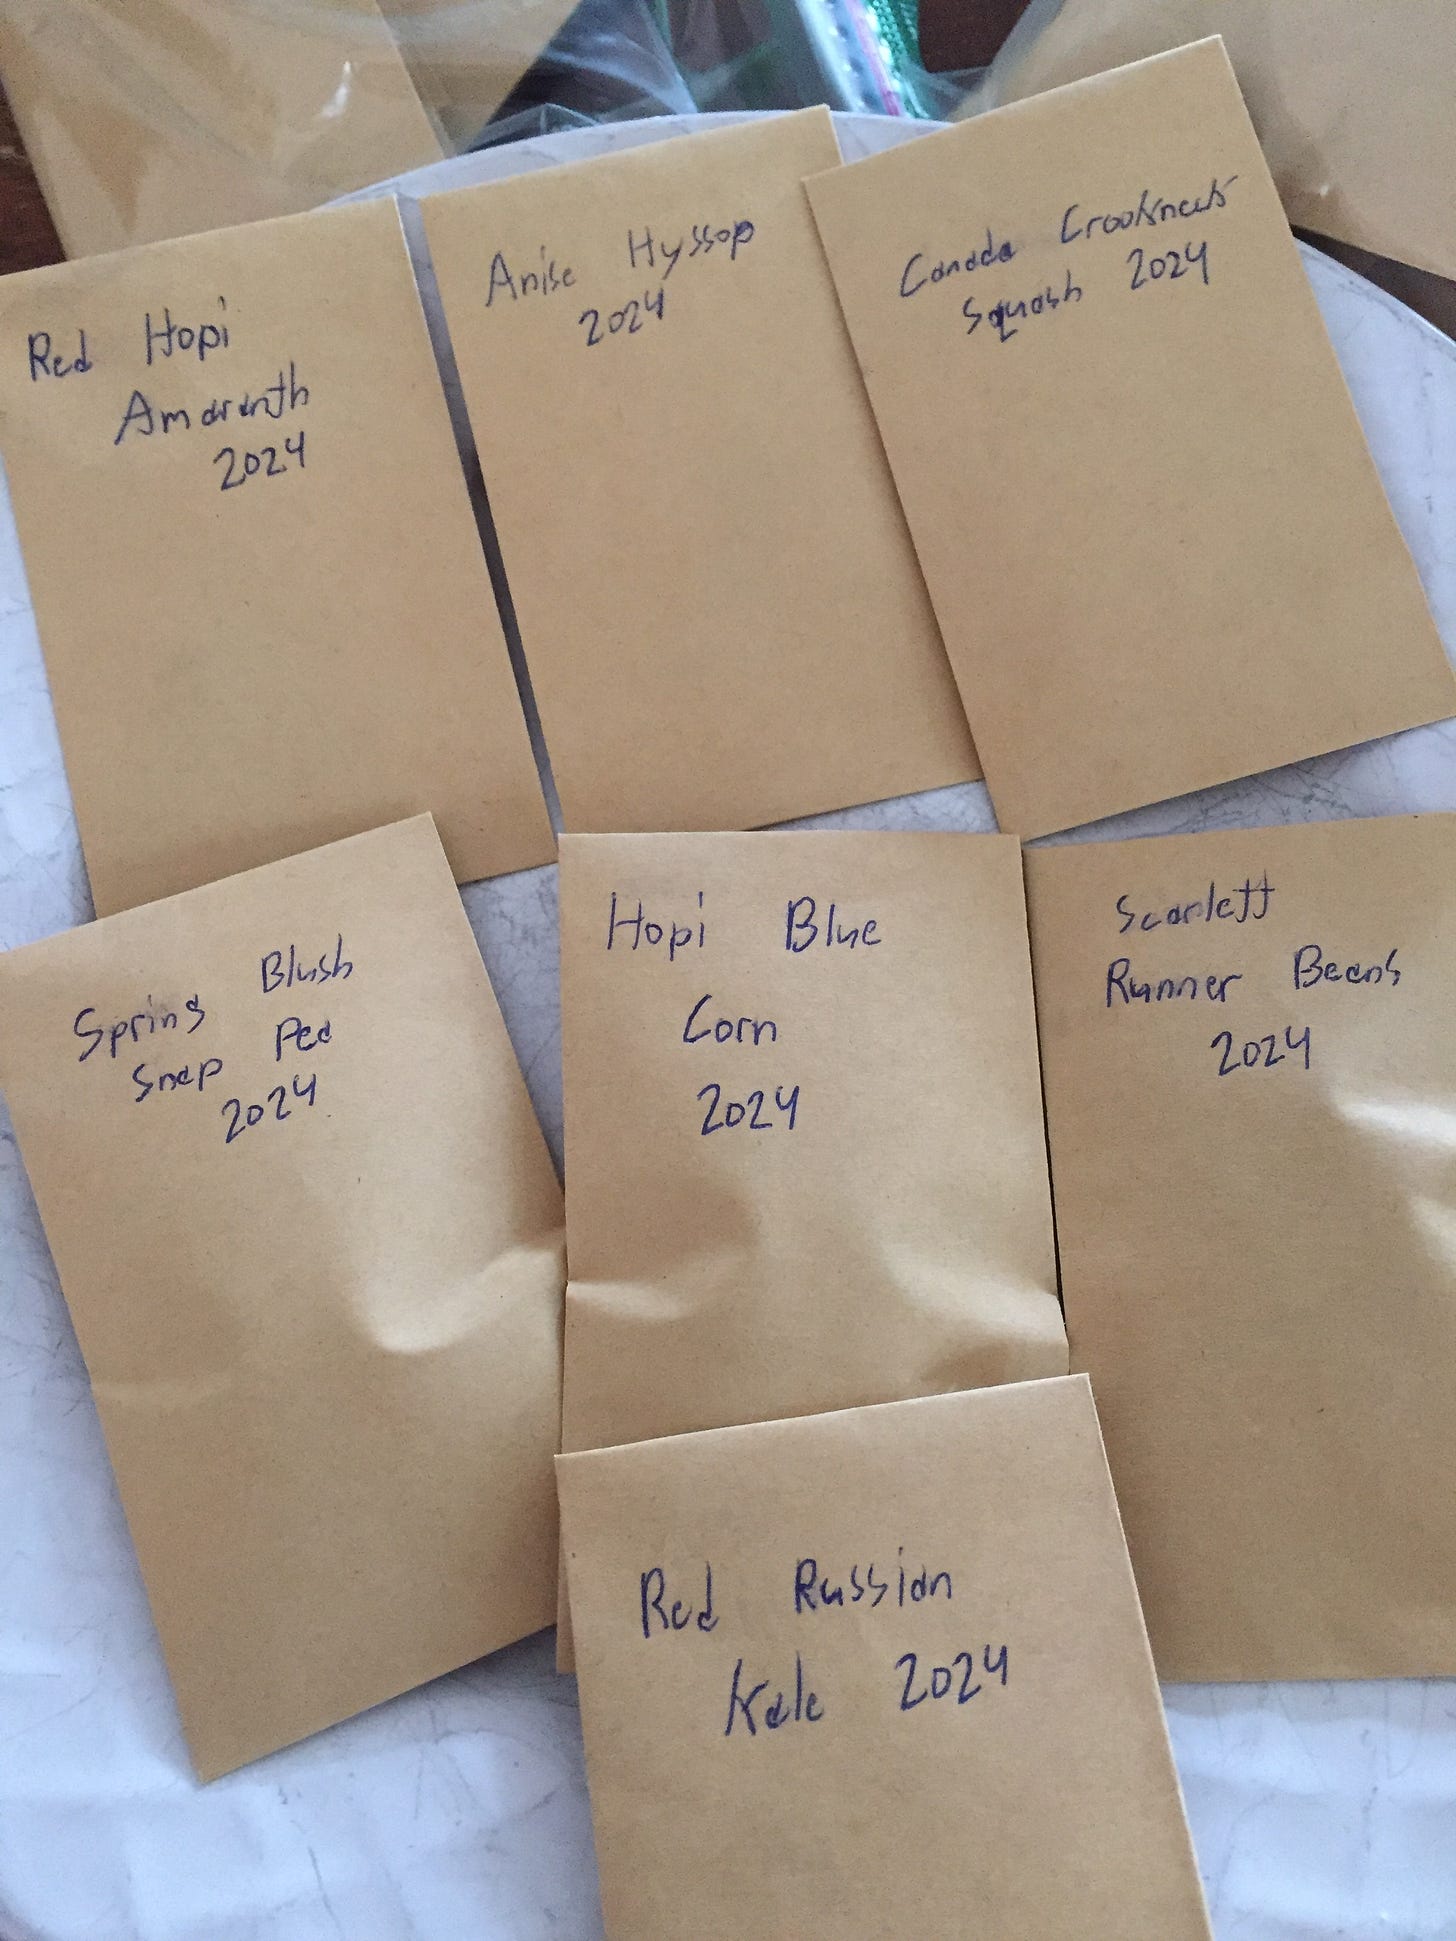 Red Hopi
Amaranth
2024
Anise Hyssop
2024
Canada Crookneck
Squash 2024
Spring Blush
Snap Pea
2024
Hopi Blue
Corn
2024
Scarlett
Runner Beans
2024
Red Russian
Kale 2024